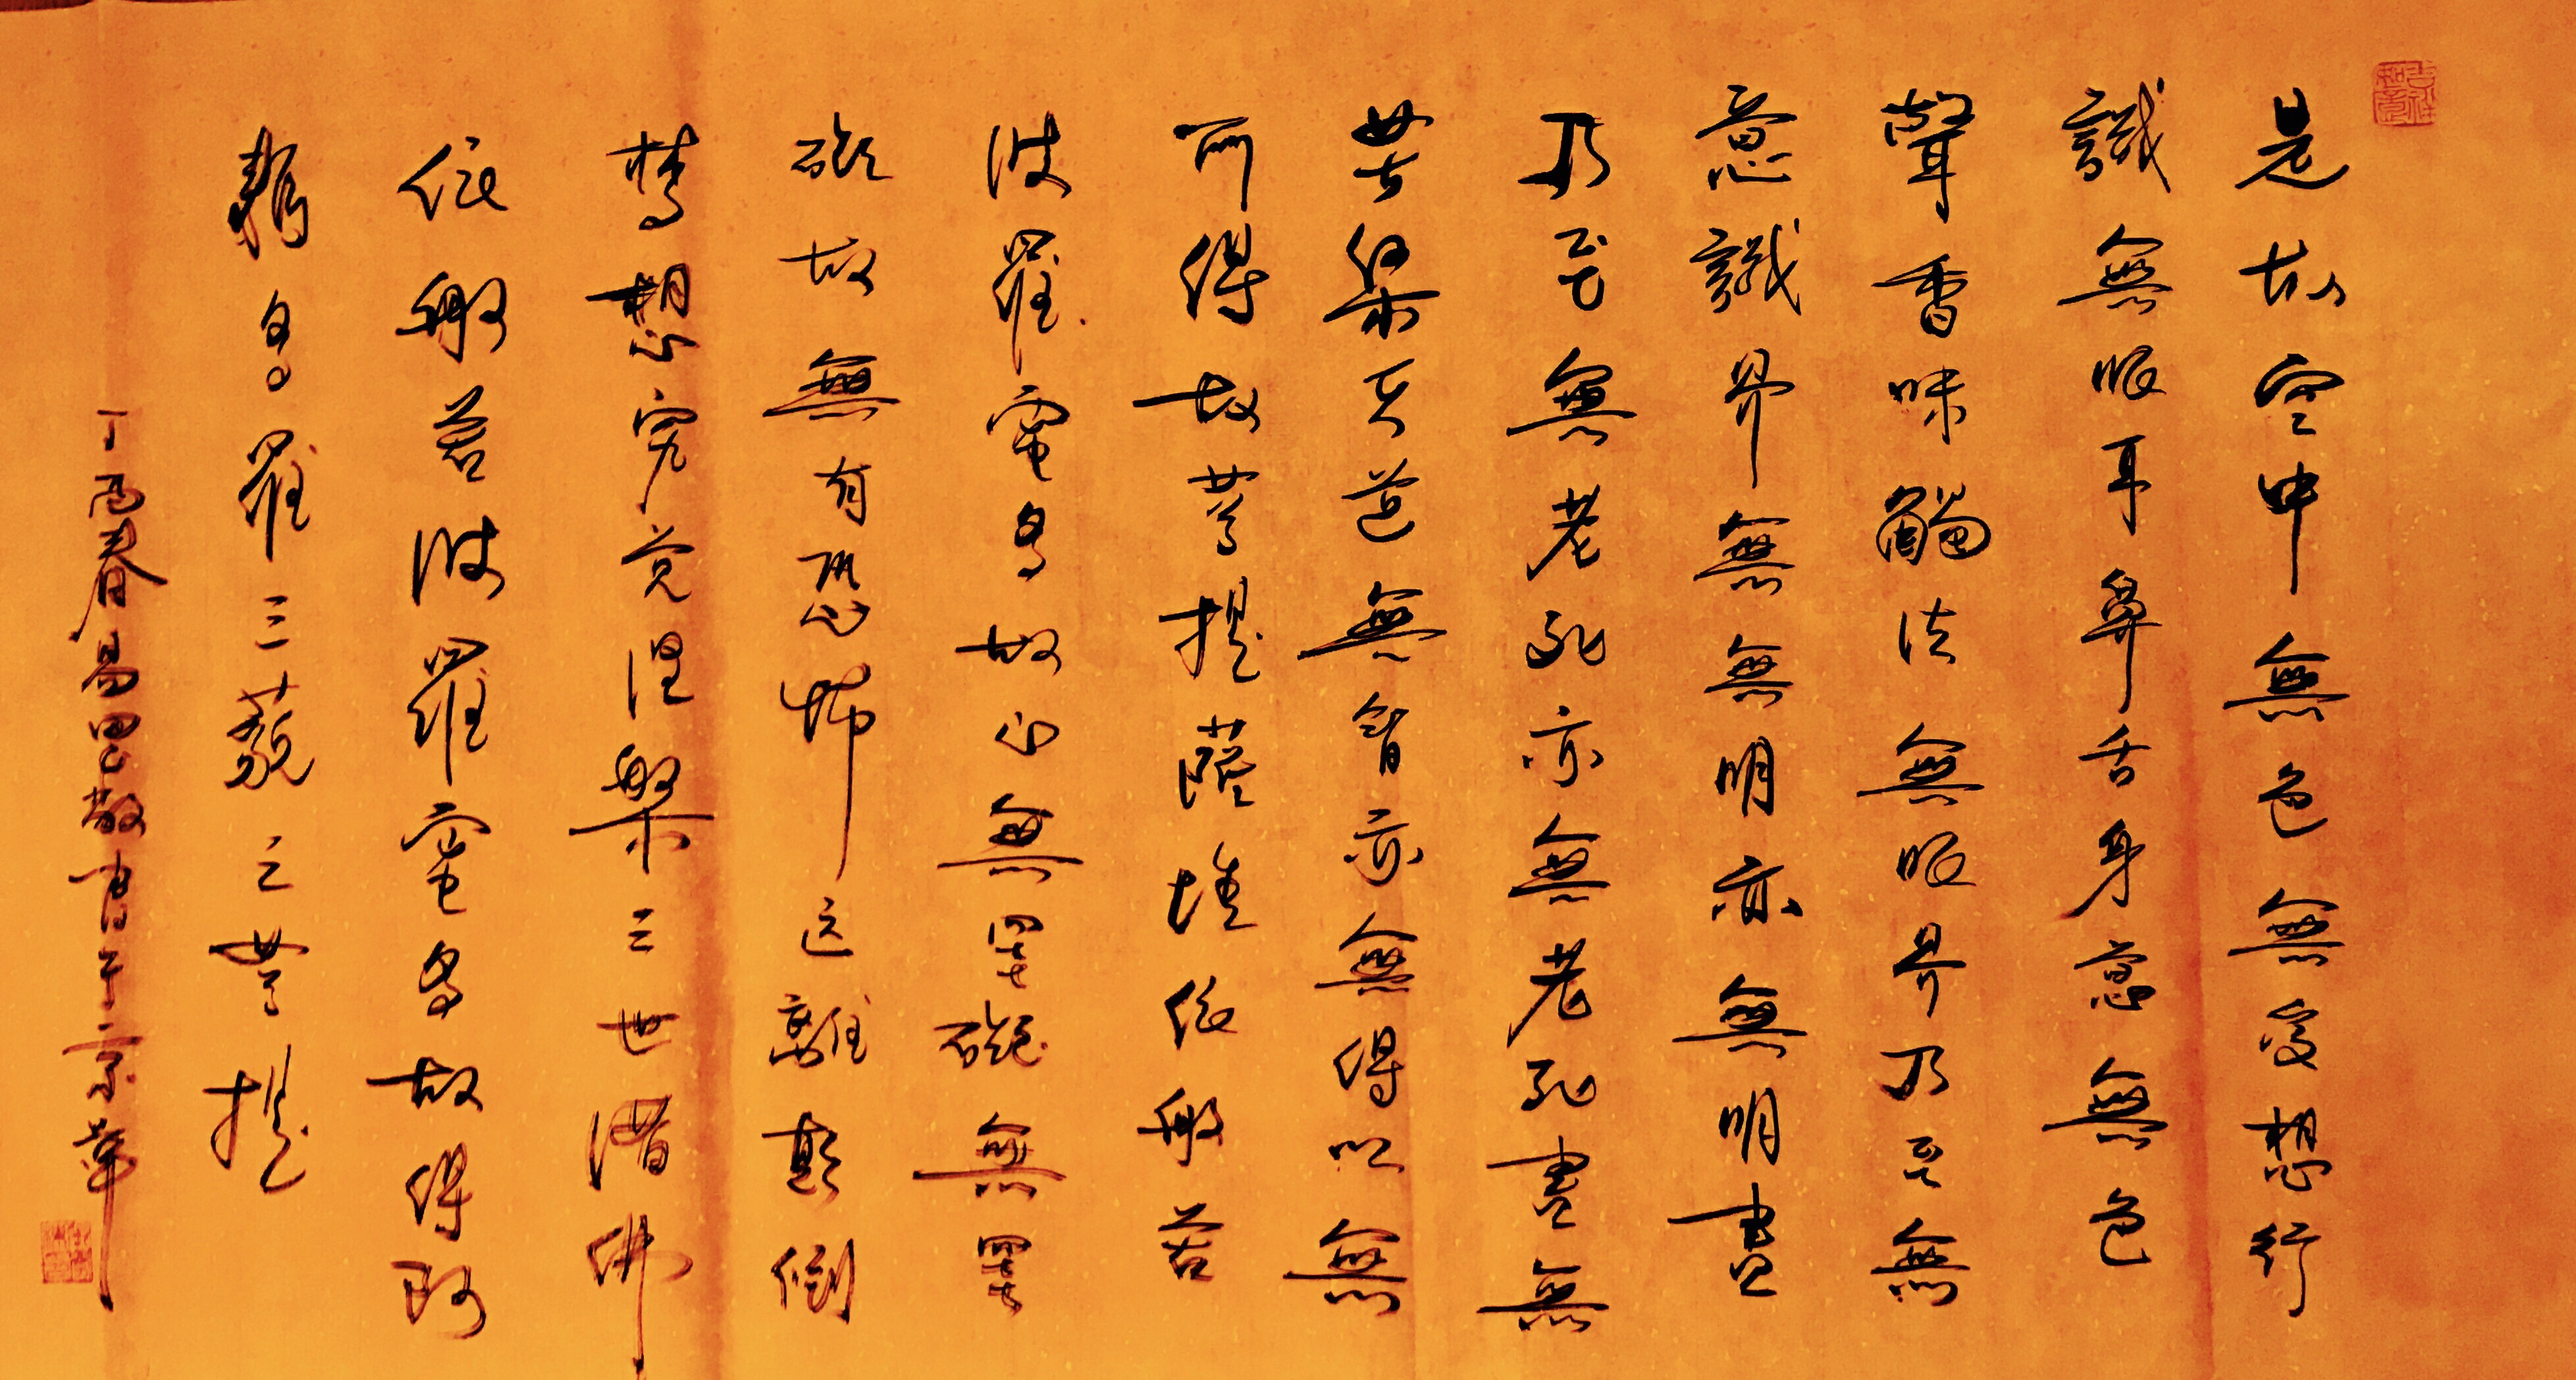 是故空中無色無受想行
識無眼耳鼻舌身意無色
聲香味觸法無眼界乃至無
意識界無無明亦無無明盡
乃至無老死亦無老死盡無
苦集滅道無智亦無得以無
所得故菩提薩埵依般若
波羅蜜多故心無罣礙無罣
礙故無有恐怖遠離顛倒
梦想究竟涅槃三世諸佛
依般若波羅蜜多故得阿
耨多羅三藐三菩提
丁酉春易 敬書于京華